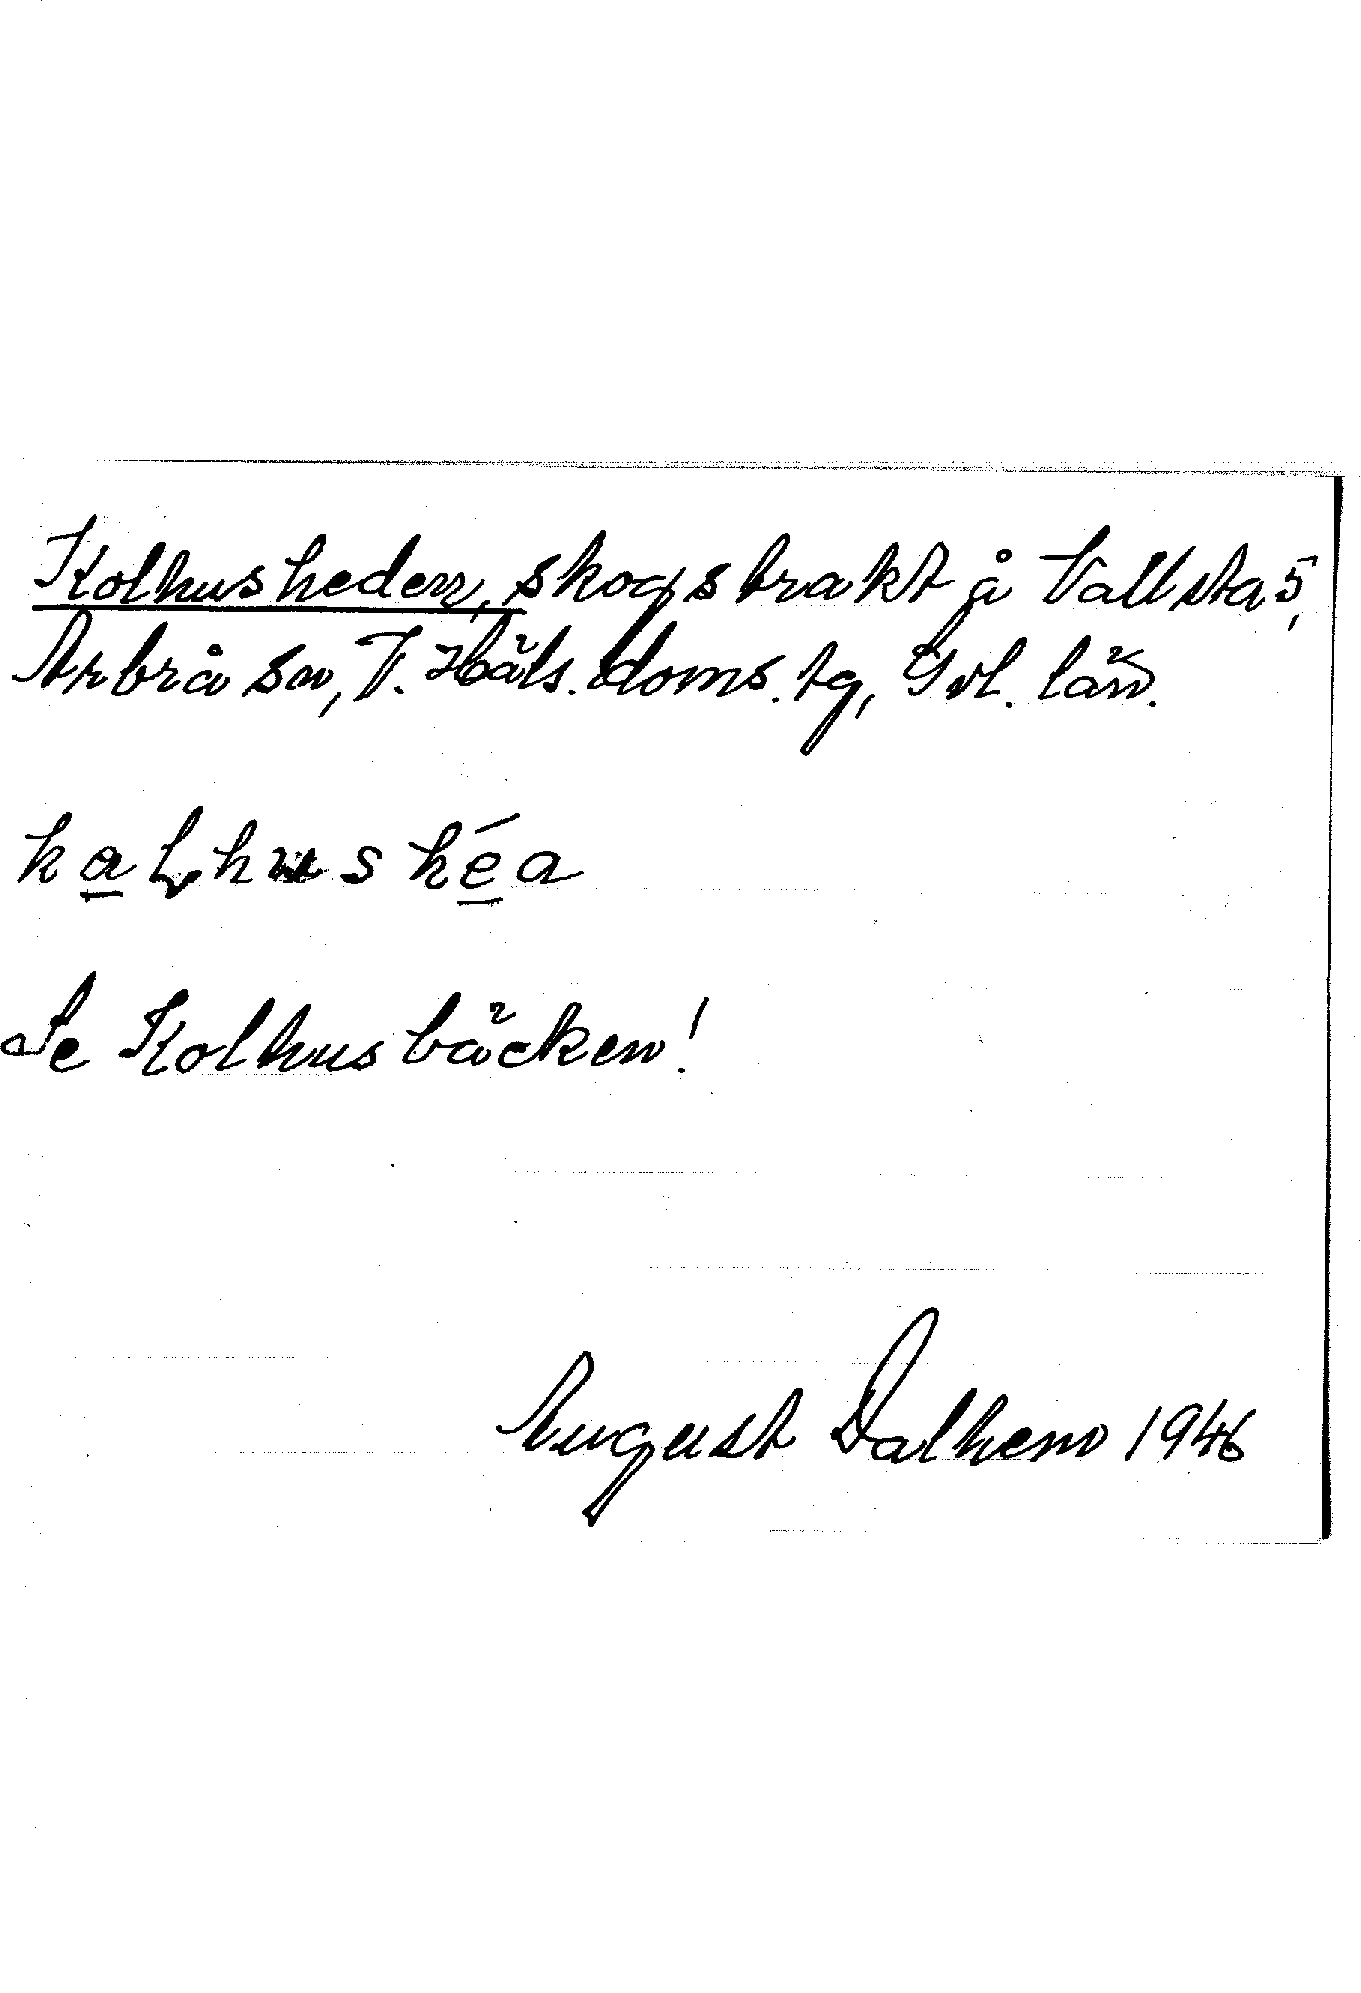 Kolhusheden, skogstrakt å Vallsta 5,
Arbrå sn, V. Häls. doms. tg, Gvl. län.
kaLhushéa
Se Kolhusbäcken!
August Dalhem 1946